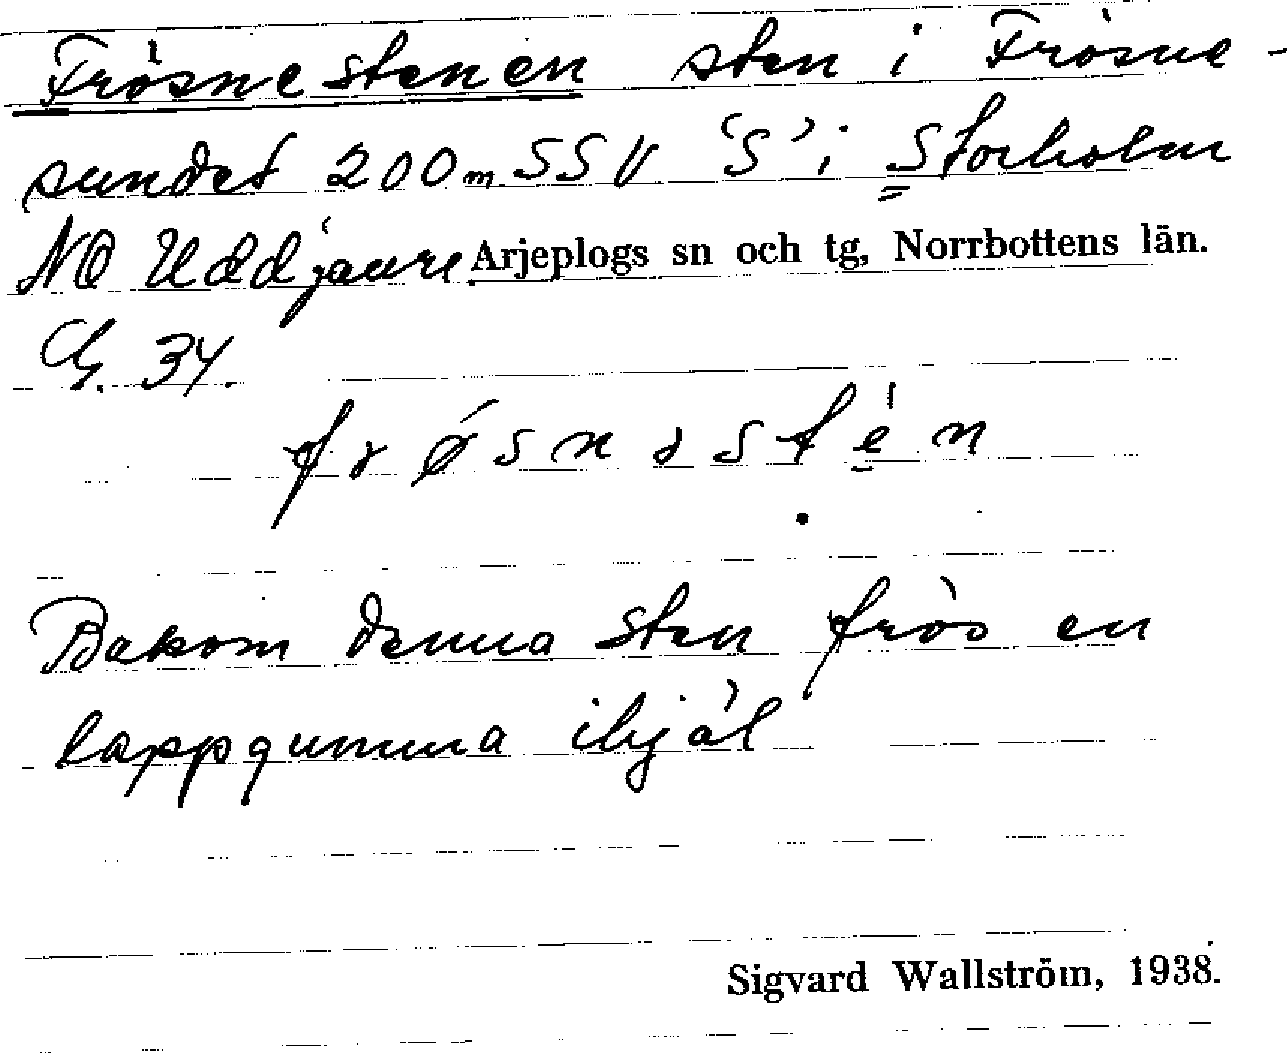 Frösnestenen sten i Frösne-
sundet 200m SSV 'S' i Storholm
NO Uddjaure Arjeplogs sn och tg, Norrbottens län.
G. 34.
frǿsnəstén
Bakom denna sten frös en
lappgumma ihjäl
Sigvard Wallström, 1938.